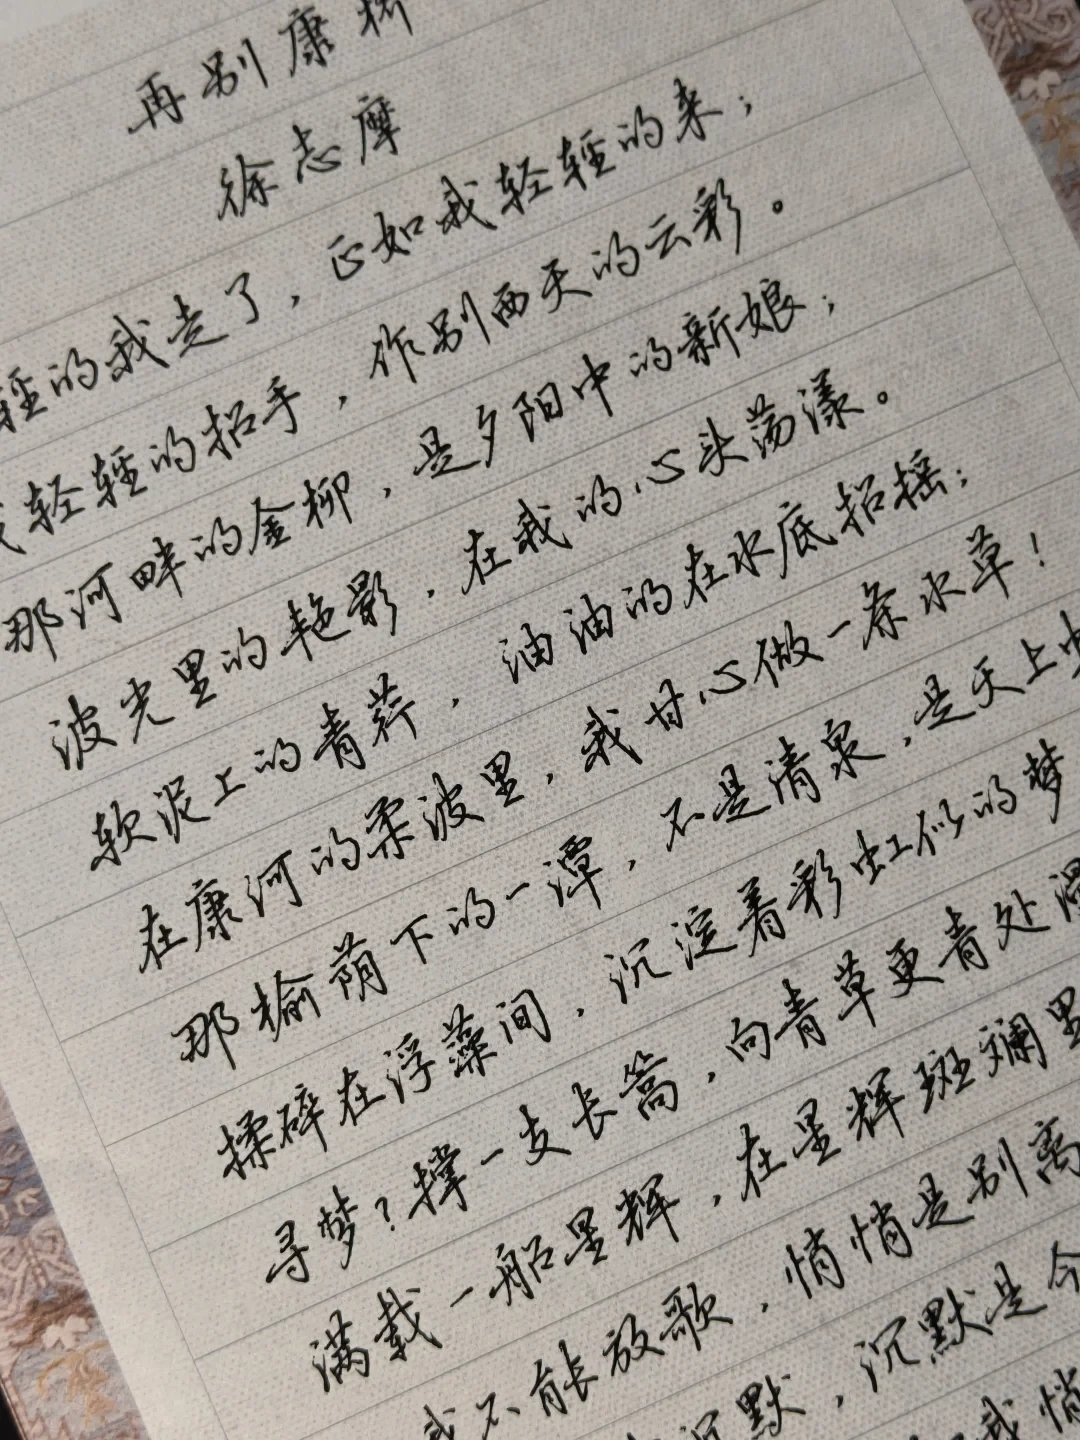 再别康桥
徐志摩
轻的我走了，正如我轻轻的来；
我轻轻的招手，作别西天的云彩。
那河畔的金柳，是夕阳中的新娘；
波光里的艳影，在我的心头荡漾。
软泥上的青荇，油油的在水底招摇；
在康河的柔波里，我甘心做一条水草！
那榆荫下的一潭，不是清泉，是天上虹
揉碎在浮藻间，沉淀着彩虹似的梦
寻梦？撑一支长篙，向青草更青处漫
满载一船星辉，在星辉斑斓里
我不能放歌，悄悄是别离
沉默，沉默是今
我悄